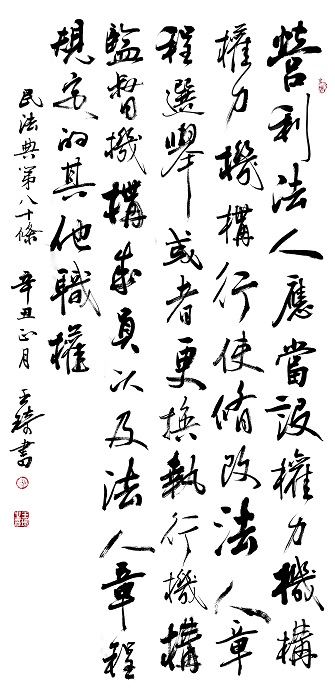 營利法人應當設權力機構
權力機構行使修改法人章
程選舉或者更換執行機構
監督機構成員以及法人章程
規定的其他職權
民法典第八十條 辛丑正月 王 書